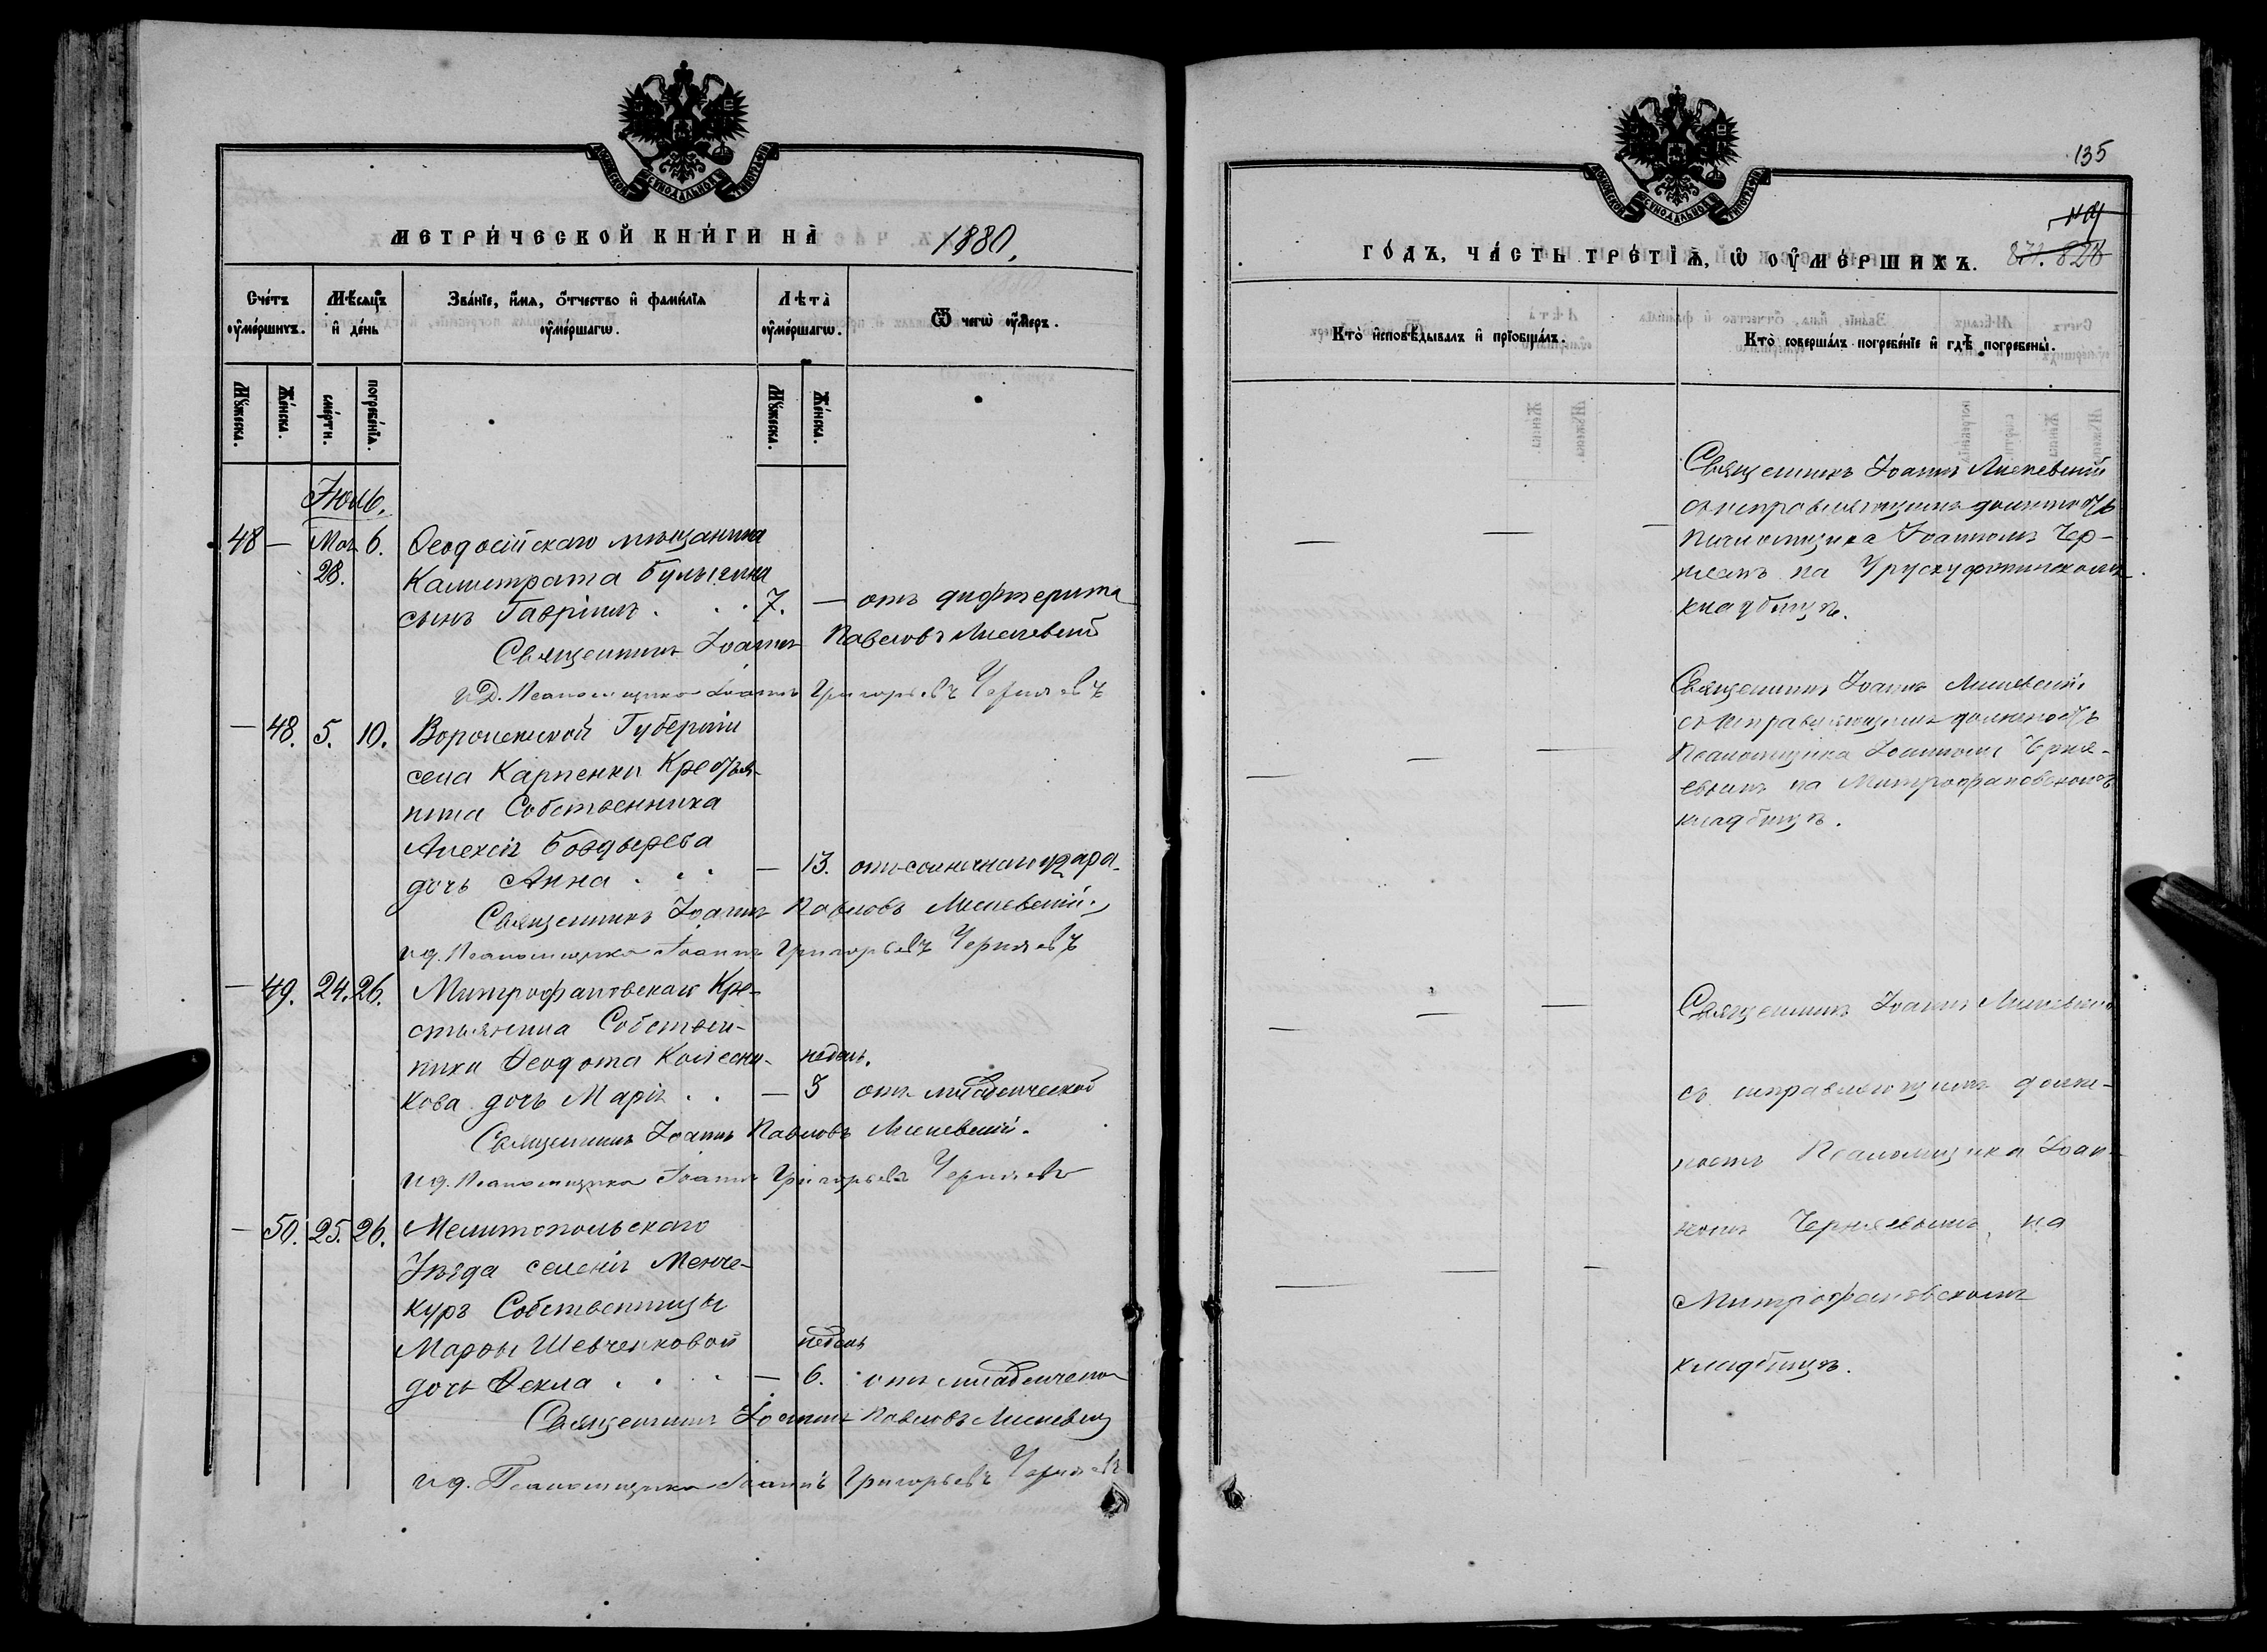 МЕТРИ́ЧЕСКОЙ КНИ́ГИ НА̀ 1880,
Сче́тъ ᲂу҆ме́ршихъ.
Мѣ́сяцъ и҆ де́нь
Зва́нїе, и҆́мя, ѻ҆́тчество и҆ фами́лїя ᲂу҆ме́ршагѡ.
Лѣ́та ᲂу҆ме́ршагѡ.
Ѿ чегѡ̀ ᲂу҆́меръ.
Мꙋ́жеска.
Же́нска.
сме́рти.
погребе́нїѧ.
Мꙋ́жеска.
Же́нска.
Іюль.
48 — Мая 28. 6. Ѳеодосійскаго мѣщанина
Калистрата Булыгина
сынъ Гавріилъ . . . 7. — отъ дифтерита
Священникъ Іоаннъ Павловъ Лисневскій
И.Д. Псаломщика Іоаннъ Григорьевъ Черняевъ
— 48. 5. 10. Воронежской Губерніи
села Карпенки Крестья-
нина Собственника
Алексія Болдырева
дочь Анна . . . — 13. отъ солнечнаго удара.
Священникъ Іоаннъ Павловъ Лисневскій.
и.д. Псаломщика Іоаннъ Григорьевъ Черняевъ
— 49. 24. 26. Митрофановскаго Кре-
стьянина Собствен-
ника Ѳеодота Колесни- недѣль.
кова дочь Марія . . — 3 отъ младенческой
Священникъ Іоаннъ Павловъ Лисневскій.
и.д. Псаломщика Іоаннъ Григорьевъ Черняевъ
— 50. 25. 26. Мелитопольскаго
Уѣзда селенія Менче-
куръ Собственницы
Марѳы Шевченковой недѣль
дочь Ѳекла . . . — 6. отъ младенческой
Священникъ Іоаннъ Павловъ Лисневскій
и.д. Псаломщика Іоаннъ Григорьевъ Черняевъ
135
871. 826
ГО́ДЪ, ЧА́СТЬ ТРЕ́ТЇѦ, Ѡ҆ ОУ҆МЕ́РШИХЪ.
Кто̀ и҆сповѣ́дывалъ и҆ прїѡбща́лъ.
Кто̀ соверша́лъ погребе́нїе и҆ гдѣ̀ погребены̀.
Священникъ Іоаннъ Лисневскій
съ исправляющимъ должность
Псаломщика Іоанномъ Чер-
няевъ на
кладбищѣ.
Священникъ Іоаннъ Лисневскій
съ исправляющимъ должность
Псаломщика Іоанномъ Черня-
евымъ на Митрофановскомъ
кладбищѣ.
Священникъ Іоаннъ Лисневскій
съ исправляющимъ долж-
ность Псаломщика Іоан-
номъ Черняевымъ, на
Митрофановскомъ
кладбищѣ.